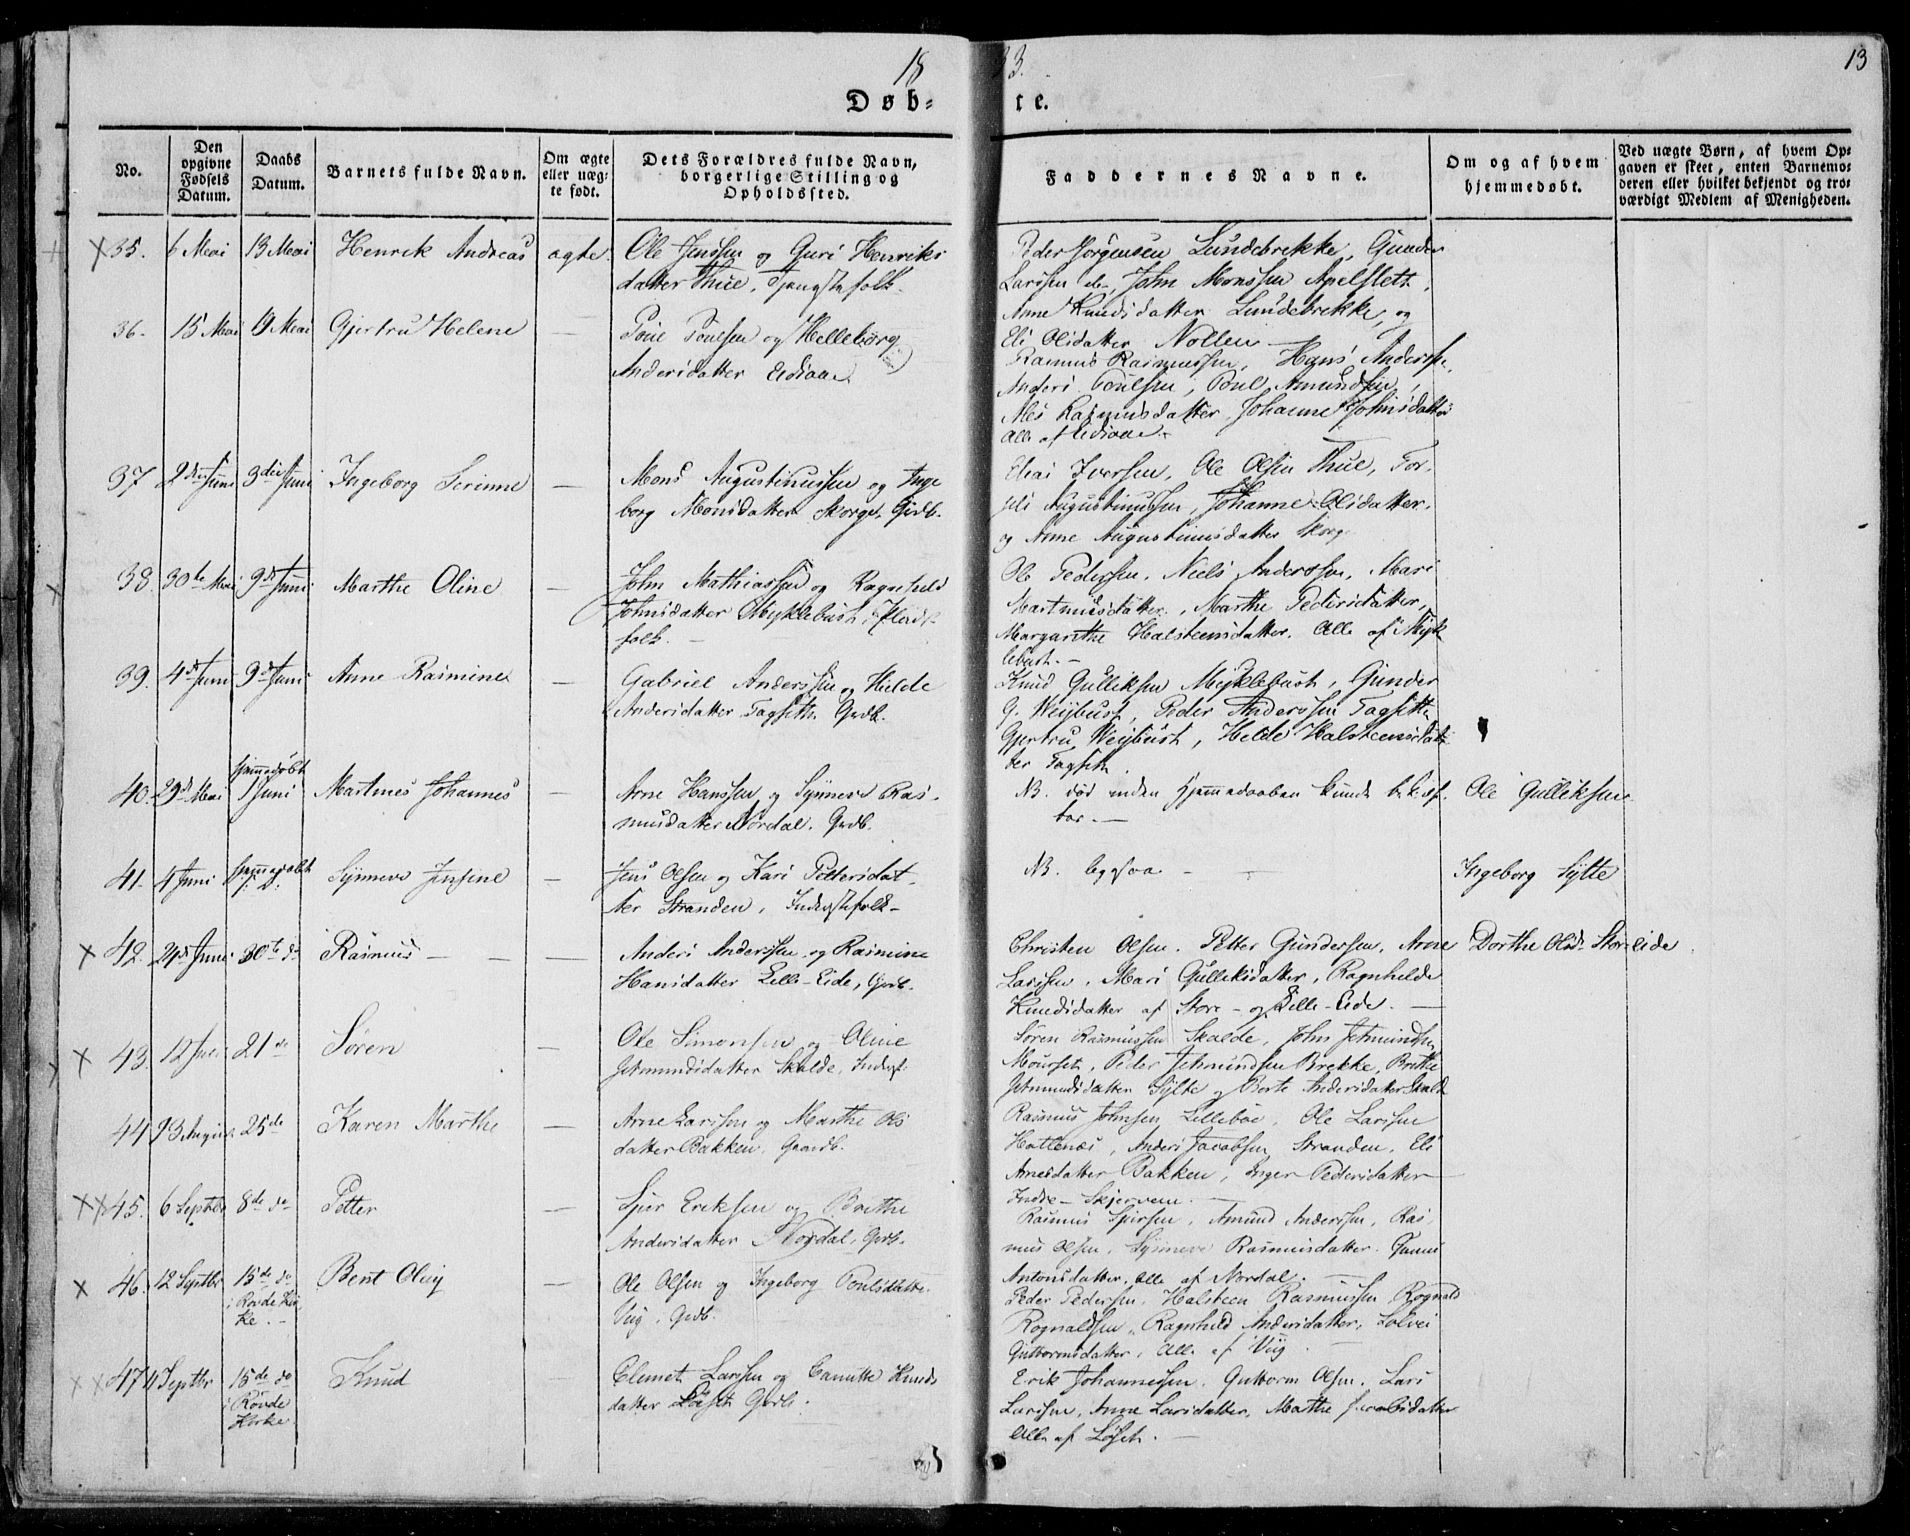 18 33. 13
Døb- te.
No.
Den opgivne Fødsels Datum.
Daabs Datum.
Barnets fulde Navn.
Om ægte eller uægte født.
Dets Forældres fulde Navn, borgerlige Stilling og Opholdssted.
Faddernes Navne.
Om og af hvem hjemmedøbt.
Ved uægte Børn, af hvem Opgaven er skeet, enten Barnemoderen eller hvilket bekjendt og troværdigt Medlem af Menigheden.
35. 6 Mai 13 Mai Henrik Andreas ægte
Ole Jenssen og Guri Henriks
datter Thue, Tjenstefolk.
Peder Jørgensen Lundebrekke, Gunder
Larssen do, John Monssen Apelsett,
Anne Knudsdatter Lundebrekke, og
Eli Olsdatter Nollen
36. 15 Mai 19 Mai Gjertru Helene —
Poul Poulsen og Helleborg
Andersdatter Eidiaae
Rasmus Rasmussen, Hans Anderss.,
Anders Poulsen, Poul Amundsen,
Rasmusdatter, Johanne Johnsdatter
Alle af Eidiaae.
37 2den Juni 3die Juni Ingeborg Serinne —
Mons Augustinussen og Inge
borg Monsdatter Skorge. Grdb.
Elias Iversen, Ole Olsen Thue, Tor.
Augustinussen, Johanne Olsdatter,
og Anne Augustinusdatter Skorg
38. 30te Mai 9de Juni Marthe Oline —
John Mathiassen og Ragnhild
Johnsdatter Myklebust,
folk. —
Ole Pedersen, Niels Anderssen, Mari
Martinusdatter, Marthe Pedersdatter,
Margarethe Halsteensdatter. Alle af Myk
lebust. —
39. 4de Juni 9de Juni Anne Rasmine —
Gabriel Anderssen og Hilde
Andersdatter Tagseth. Grdb.
Knud Gulliksen Myklebust, Gunder
G. Weybust, Peder Anderssen Tagseth
Gjertru Weybust, Helde Halsteensdat
ter Tagseth.
40. 29de Mai hjemmedøbt 1 Juni Martines Johannes —
Arne Hanssen og Synneve Ras
musdatter Nordal. Grdb.
NB. død inden Hjemmedaaben kunde
Ole Gulliksen
41. 4 Juni hjemmedøbt Synneve Jensine —
Jens Olsen og Kari Pettersdat
ter Stranden, Inderstefolk —
NB. ligesaa —
Ingeborg Sylte
42. Juni 30te do Rasmus — — —
Anders Anderssen og Rasmine
Hansdatter Lille-Eide, Grdb.
Christen Olsen. Petter Gunderssen, Arne
Larssen, Mari Gulliksdatter, Ragnhilde
Knudsdatter af Store- og Lille-Eide. —
Dorthe Olsdr Store Eide
43. 12 Juli 21 do Søren —
Ole Simonsen og Oline
Jetmundsdatter Skalde, Inderst.
Søren Rasmussen Skalde, John Jetmundsen
Mourset, Peder Jetmundsen Brekke, Brithe
Jetmundsdatter Sylte og Berte Andersdatter Skald
44 23 August 25de Karen Marthe —
Arne Larssen og Marthe Ols
datter Bakken. Gaardb.
Rasmus Johnsen Lillebøe, Ole Larssen
Hattenes, Anders Jacobsen Stranden, Eli
Arnesdatter Bakken, Inger Pedersdatter
Indre-Skjervem. —
45. 6 Septbr 8de do Petter —
Sjur Eriksen og Brithe
Andersdatter Nordal, Grdb.
Rasmus Sjursen, Amund Anderssen, Ras
mus Olsen, Synneve Rasmusdatter,
Antonsdatter, alle af Nordal. —
46. 12 Septbr 15de do i Røvde Kir ke. — Bent Oluy —
Ole Olsen og Ingeborg Poulsdatter
Viig, Grdb.
Peder Pedersen, Halsteen Rasmussen, Rognald
Rognaldsen, Ragnhild Andersdatter, Solvei
Guttormsdatter, Alle af Viig.
47 11 Septbr 15de do i Røvde Kirke Knud —
Clemet Larssen og Canutte Knuds
datter Løset Grdb.
Erik Johannessen, Guttorm Olsen. Lars
Larssen, Anne Larsdatter, Marthe Jacobsdatter
Alle af Løset. —